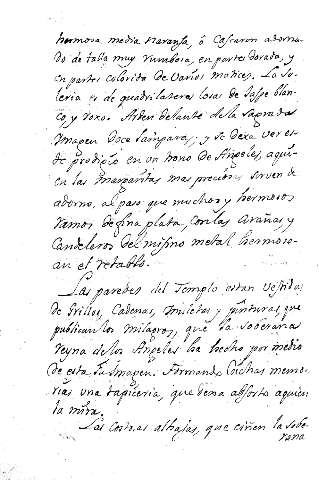 hermosa media naranja, ò Cascaron adorna-
do de talla muy rumbosa, en partes dorada, y
en partes colorida de varios matices. La So-
leria es de quadrilateras losas de Jaspe blan-
co, y roxo. Arden delante de la sagrada
Imagen doce lamparas, y se dexa ver es-
te prodigio en un trono de Angeles, aqui-
en las Margaritas mas preciosas sirven de
adorno, al paso que muchos y hermosos
ramos de fina plata, con las Arañas y
Candeleros del mismo metal hermose-
an el retablo.
Las paredes del Templo estan vestidas
de Grillos, Cadenas, Muletas y pinturas, que
publican los Milagros, que la Soberana
Reyna de los Angeles ha hecho por medio
de esta su Imagen. Formando dichas memo-
rias una tapiceria, que dexa absorto aquien
la mira.
Las Coronas alhajas, que ciñen la Sobe-
rana